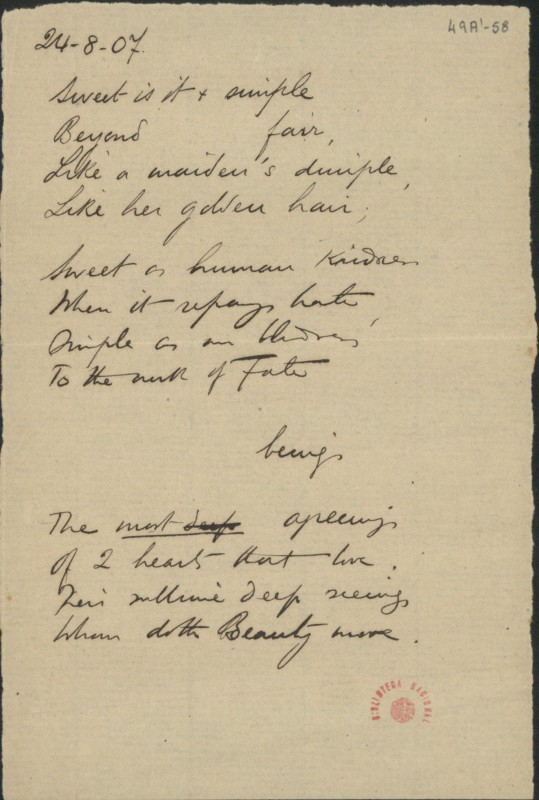 49A¹-58
24-8-07.
Sweet is it + simple
Beyond fair,
Like a maiden's dimple,
Like her golden hair;
Sweet as human kindness
When it repays hate,
Simple as our blindness
To the work of Fate
beings
The most deep agreeings
Of 2 hearts that love.
Their sublime deep seeings
Whom doth Beauty move.
BIBLIOTECA NACIONAL